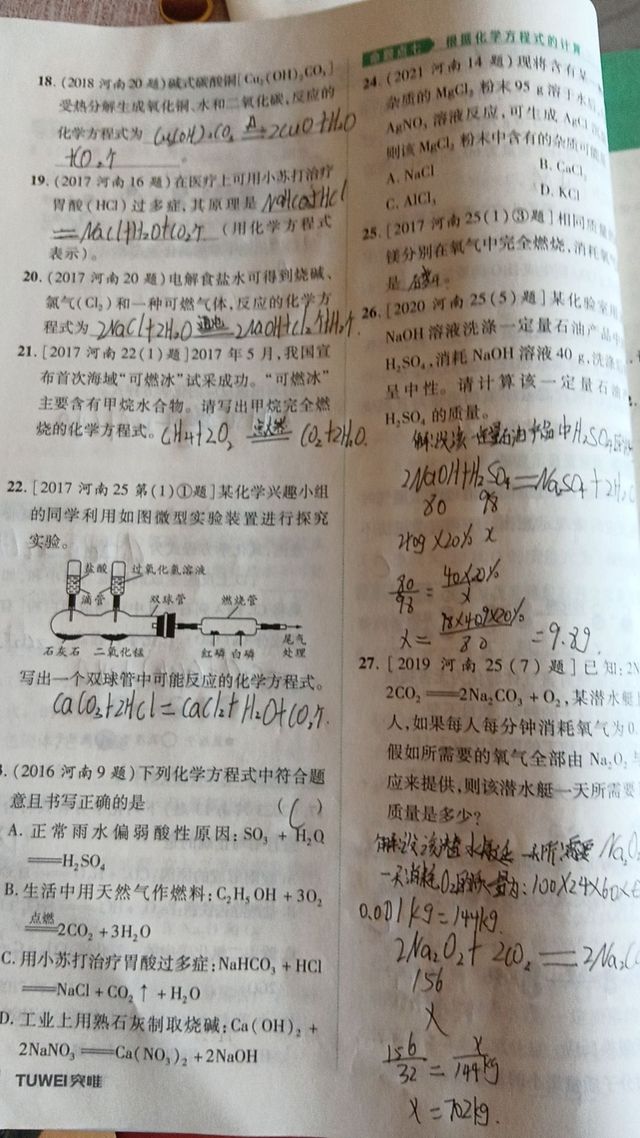 18. (2018 河南 20 题) 碱式碳酸铜[Cu₂(OH)₂CO₃]
受热分解生成氧化铜、水和二氧化碳,反应的
化学方程式为 Cu₂(OH)₂CO₃ ══△ 2CuO+H₂O
+CO₂↑。
19. (2017 河南 16 题) 在医疗上可用小苏打治疗
胃酸(HCl)过多症,其原理是 NaHCO₃+HCl
══NaCl+H₂O+CO₂↑ (用化学方程式
表示)。
20. (2017 河南 20 题) 电解食盐水可得到烧碱、
氯气(Cl₂)和一种可燃气体,反应的化学方
程式为 2NaCl+2H₂O ══通电 2NaOH+Cl₂↑+H₂↑.
21. [2017 河南 22(1)题] 2017 年 5 月,我国宣
布首次海域“可燃冰”试采成功。“可燃冰”
主要含有甲烷水合物。请写出甲烷完全燃
烧的化学方程式。CH₄+2O₂ ══点燃 CO₂+2H₂O.
22. [2017 河南 25 第(1)①题] 某化学兴趣小组
的同学利用如图微型实验装置进行探究
实验。
盐酸 过氧化氢溶液
滴管 双球管 燃烧管
石灰石 二氧化锰 红磷 白磷 尾气
处理
写出一个双球管中可能反应的化学方程式。
CaCO₃+2HCl=CaCl₂+H₂O+CO₂↑.
3. (2016 河南 9 题) 下列化学方程式中符合题
意且书写正确的是 (C)
A. 正常雨水偏弱酸性原因:SO₃ + H₂O
══H₂SO₄
B. 生活中用天然气作燃料:C₂H₅OH + 3O₂
点燃
══2CO₂ +3H₂O
C. 用小苏打治疗胃酸过多症:NaHCO₃ + HCl
══NaCl + CO₂↑ + H₂O
D. 工业上用熟石灰制取烧碱:Ca(OH)₂ +
2NaNO₃══Ca(NO₃)₂ +2NaOH
TUWEI突唯
命题点七 根据化学方程式的计算
24. (2021 河南 14 题) 现将含有某
杂质的 MgCl₂ 粉末 95 g 溶于水后
AgNO₃ 溶液反应,可生成 AgCl
则该 MgCl₂ 粉末中含有的杂质可能
A. NaCl B. CaCl₂
C. AlCl₃ D. KCl
25. [2017 河南 25(1)③题] 相同质量
镁分别在氧气中完全燃烧,消耗氧
是
26. [2020 河南 25(5)题] 某化验室用
NaOH 溶液洗涤一定量石油产品中
H₂SO₄,消耗 NaOH 溶液 40 g,洗涤
呈中性。请计算该一定量石油
H₂SO₄ 的质量。
解:设该一定量石油产品中H₂SO₄
2NaOH+H₂SO₄=Na₂SO₄+2H₂O
80 98
40g×20% x
80/98 = 40×20%/x
x = 98×40g×20%/80 =9.8g.
27. [2019 河南 25(7)题] 已知:2N
2CO₂══2Na₂CO₃ + O₂,某潜水艇
人,如果每人每分钟消耗氧气为0.
假如所需要的氧气全部由 Na₂O₂与
应来提供,则该潜水艇一天所需要
质量是多少?
解:设该潜水艇一天所需要Na₂O₂
一天消耗O₂的质量为:100×24×60×
0.001kg=144kg.
2Na₂O₂+2CO₂══2Na₂CO
156
x
156/32 = x/144kg
x=702kg.